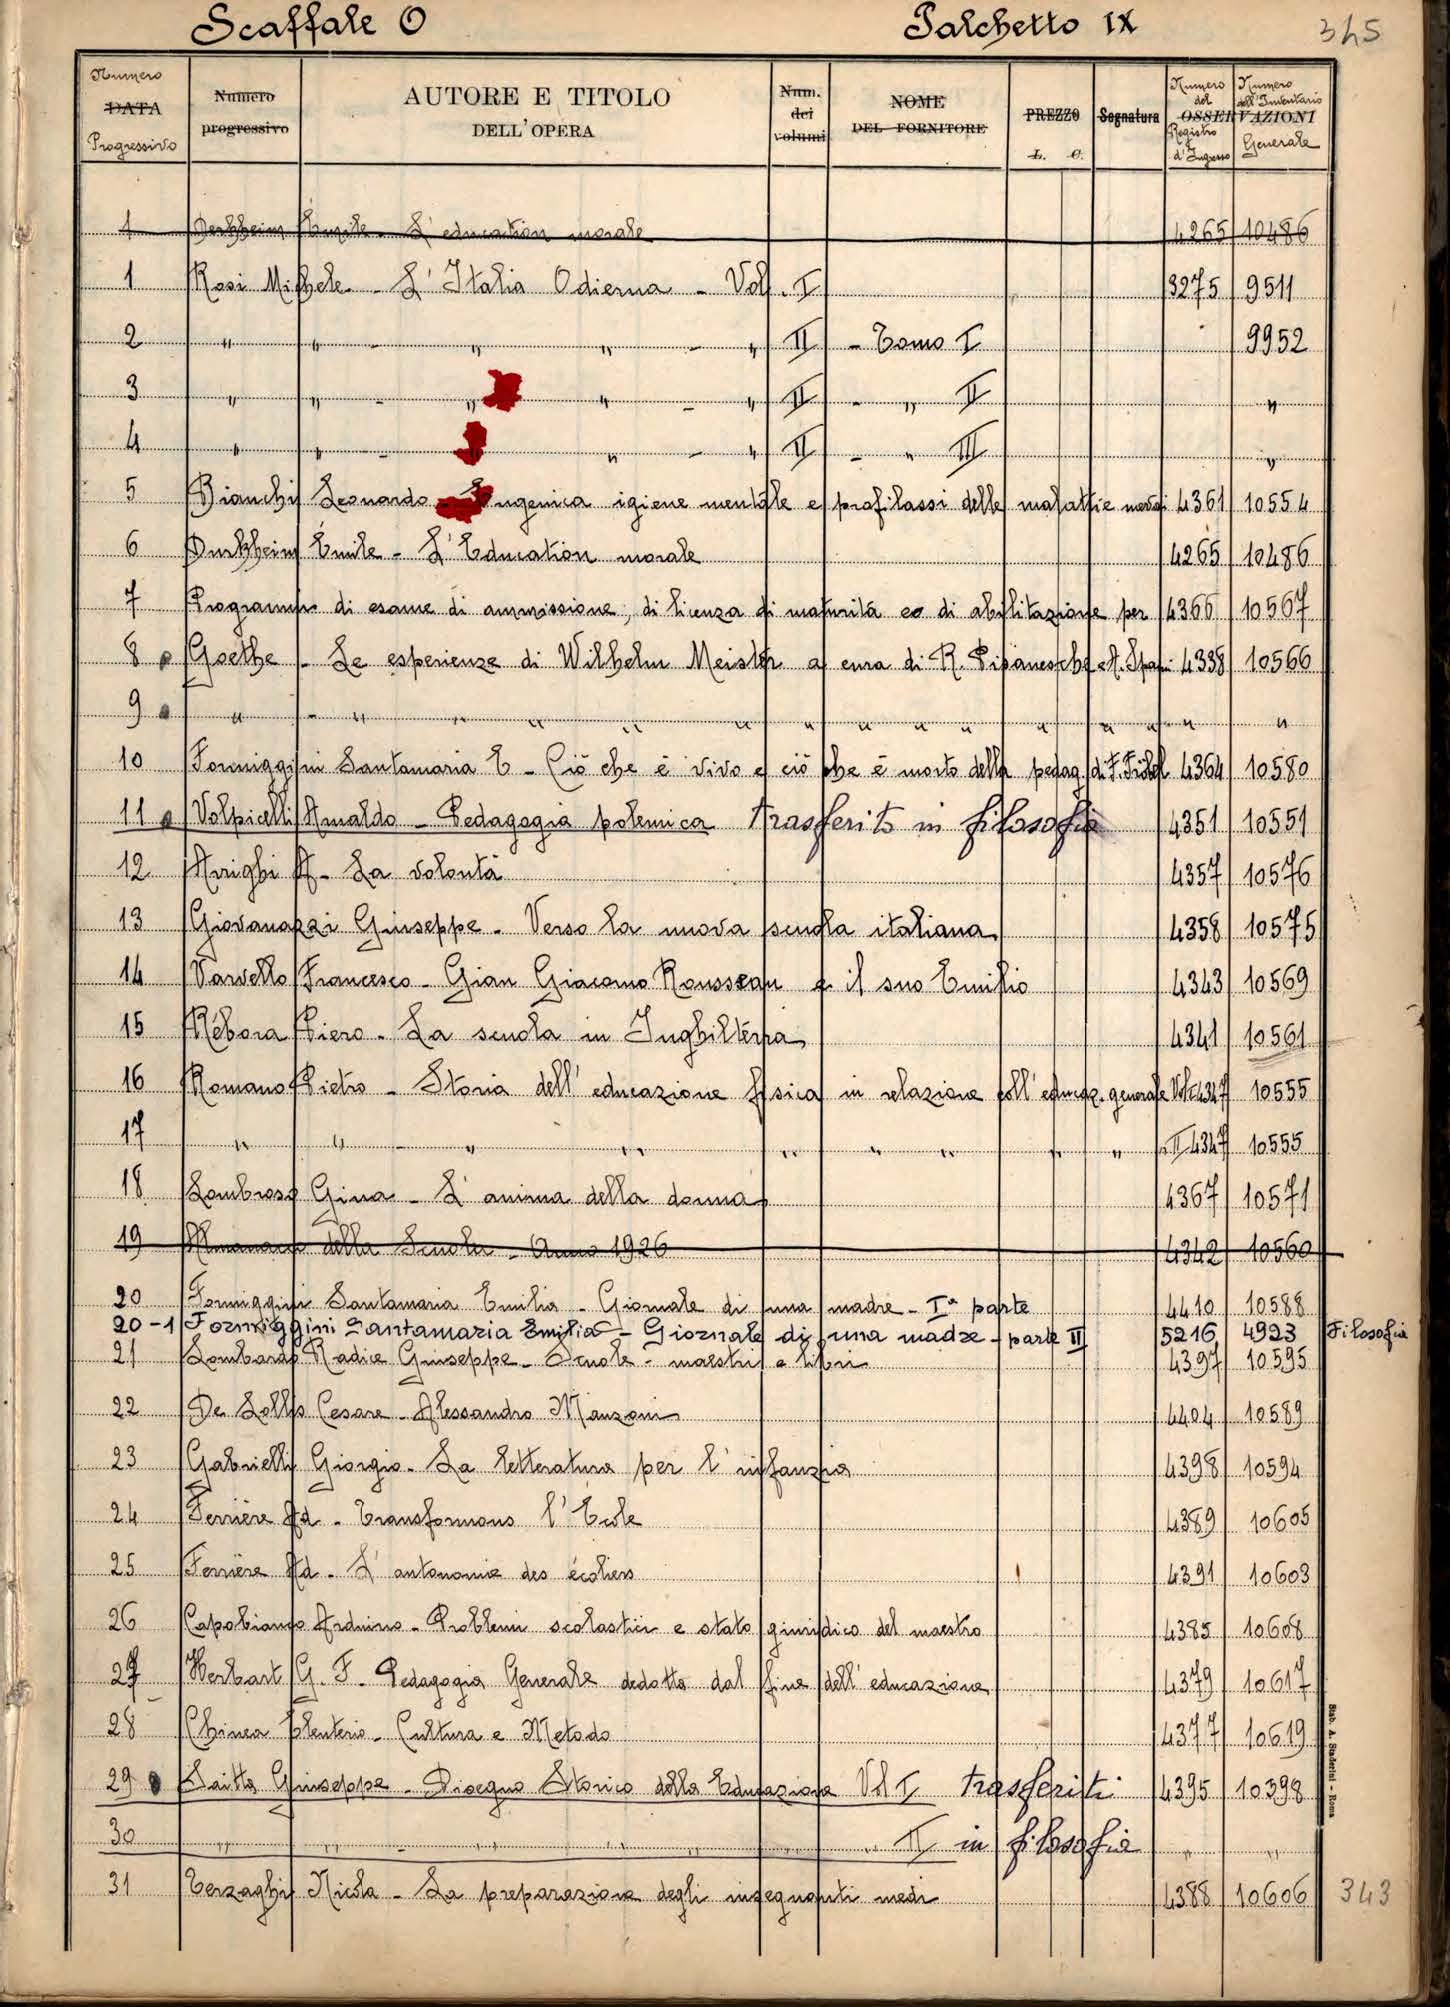 Scaffale O Palchetto IX 345
Numero DATA Progressivo Numero progressivo AUTORE E TITOLO DELL'OPERA Num. dei volumi NOME DEL FORNITORE PREZZO L. C. Segnatura OSSERVAZIONI Numero del Registro d'Ingresso Numero dell'Inventario Generale
1 Durkheim Émile - L'education morale 4265 10486
1 Rosi Michele - L'Italia Odierna - Vol. I 3275 9511
2 " " - " " - " II - Tomo I 9952
3 " " - " " - " II - " II "
4 " " - " " - " II - " III "
5 Bianchi Leonardo - Eugenica igiene mentale e profilassi delle malattie 4361 10554
6 Durkheim Émile - L'Education morale 4265 10486
7 Programmi di esame di ammissione, di licenza di maturità e di abilitazione per 4366 10567
8 Goethe - Le esperienze di Wilhelm Meister a cura di R. Pisaneschi e A. Spaini 4338 10566
9 " - " " " " " " " " " " " " " "
10 Formiggini Santamaria E - Ciò che è vivo e ciò che è morto della pedag. di F. Fröbel 4364 10580
11 Volpicelli Arnaldo - Pedagogia polemica trasferito in filosofia 4351 10551
12 Arrighi A - La volontà 4357 10576
13 Giovanazzi Giuseppe - Verso la nuova scuola italiana 4358 10575
14 Varvello Francesco - Gian Giacomo Rousseau e il suo Emilio 4343 10569
15 Rébora Piero - La scuola in Inghilterra 4341 10561
16 Romano Pietro - Storia dell'educazione fisica in relazione coll'educaz. generale Vol. I 4347 10555
17 " " " " " " " " " " II 4347 10555
18 Lombroso Gina - L'anima della donna 4367 10571
19 Almanacco della Scuola - Anno 1926 4342 10560
20 Formiggini Santamaria Emilia - Giornale di una madre - Iª parte 4410 10588
20-1 Formiggini Santamaria Emilia - Giornale di una madre - parte II 5216 4923 Filosofia
21 Lombardo Radice Giuseppe - Scuole - maestri e libri 4397 10595
22 De Lollis Cesare - Alessandro Manzoni 4404 10589
23 Gabrielli Giorgio - La letteratura per l'infanzia 4398 10594
24 Ferrière Ad - Transformons l'École 4389 10605
25 Ferrière Ad - L'autonomie des écoliers 4391 10603
26 Capobianco Arduino - Problemi scolastici e stato giuridico del maestro 4385 10608
27 Herbart G. F. - Pedagogia Generale dedotta dal fine dell'educazione 4379 10617
28 Chinea Eleuterio - Cultura e Metodo 4377 10619
29 Saitta Giuseppe - Disegno Storico della Educazione Vol I trasferiti 4395 10398
30 " " - " " " " " II in filosofia " "
31 Terzaghi Nicola - La preparazione degli insegnanti medi 4388 10606 343
Stab. A. Staderini - Roma